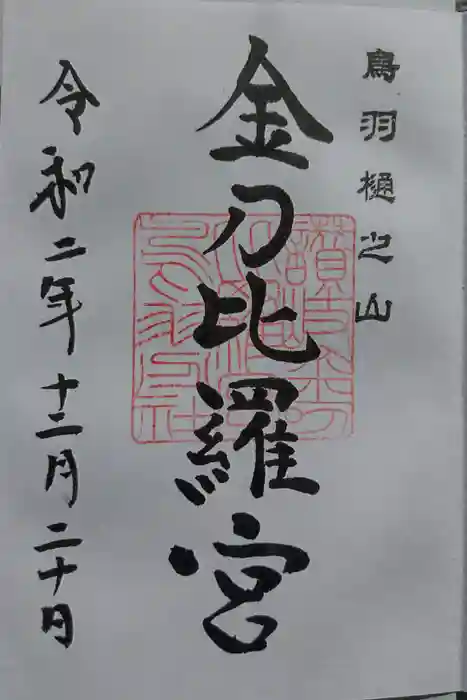 鳥羽樋之山
金刀比羅宮
令和二年十二月二十日